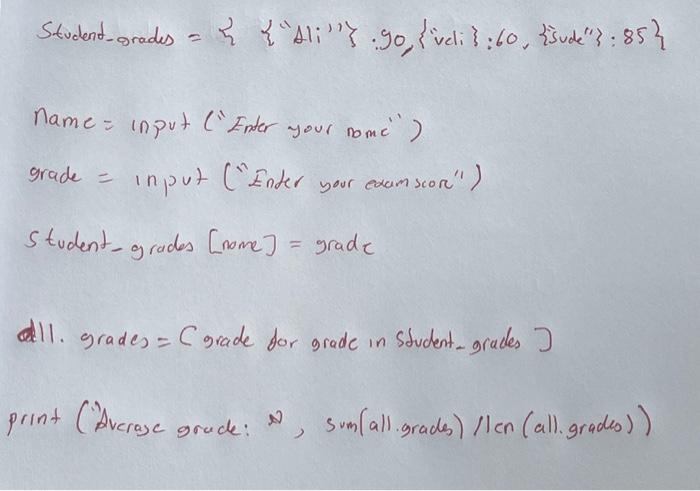 Student_grades = { {"Ali"} : 90, {"veli} : 60, {"Sude"} : 85}
name = input ("Enter your name")
grade = input ("Enter your exam score")
Student_grades [name] = grade
all. grades = [grade for grade in Student_grades]
print ("Average grade: ", sum(all.grades) / len (all.grades))